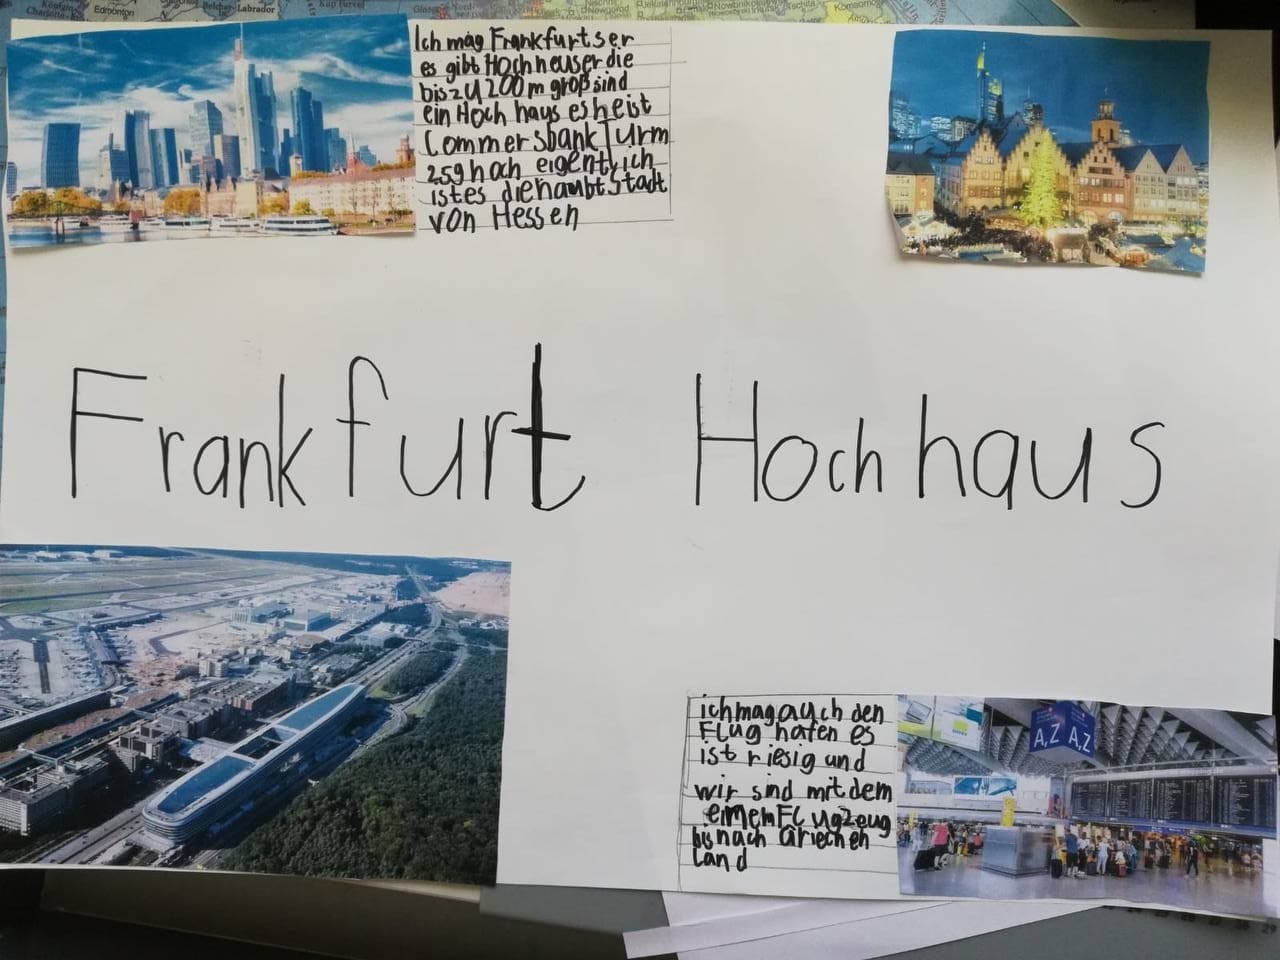 Edmonton
Labrador
Ich mag Frankfurt ser
es gibt Hochheuser die
bis zu 200 m groß sind
ein Hoch haus es heist
Commersbank Turm
259 hoch eigentlich
ist es die haubt Stadt
von Hessen
Frankfurt Hochhaus
ich mag auch den
Flug hafen es
ist riesig und
wir sind mit dem
einem Flugzeug
bis nach Griechen
land
A,Z A,Z